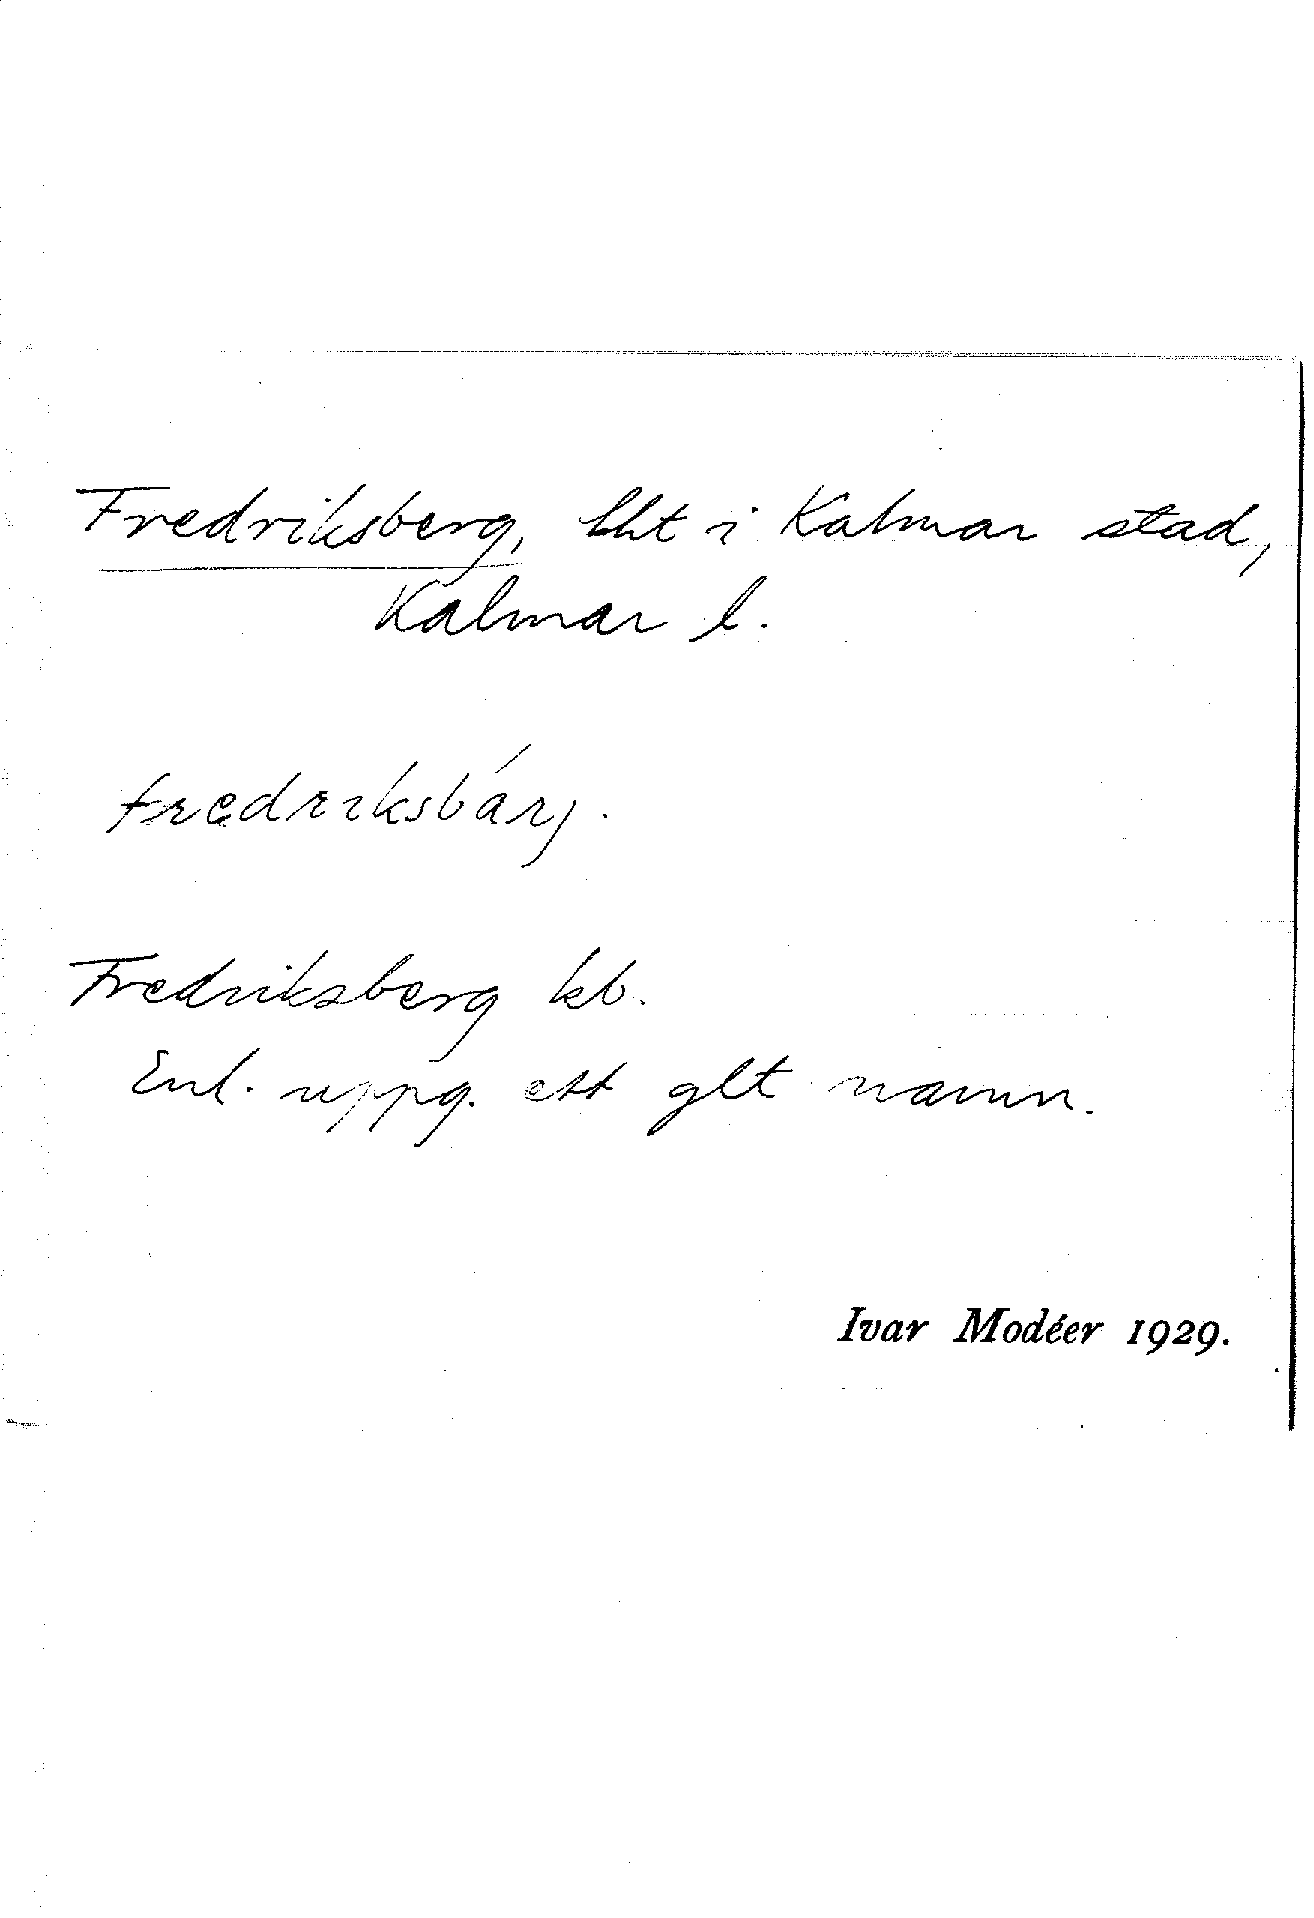 Fredriksberg, lht i Kalmar stad,
Kalmar l.
fredriksbárj.
Fredriksberg kb.
Enl. uppg. ett glt namn.
Ivar Modéer 1929.